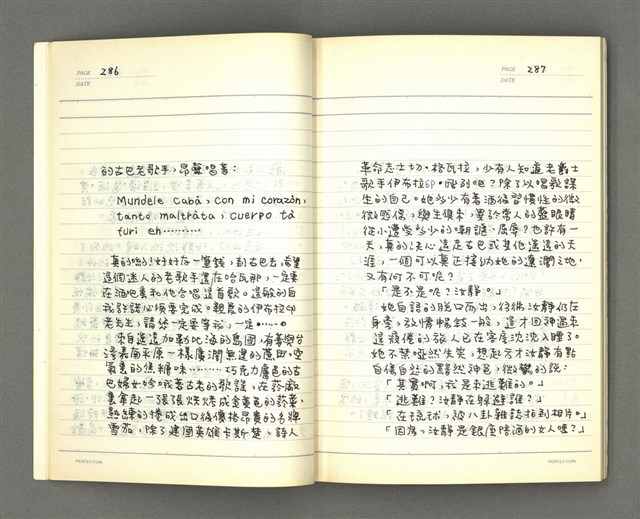 PAGE 286
DATE
的古巴老歌手，昂聲唱著：
Mundele cabá, con mi corazón,
tanto maltráta, cuerpo tá
turi eh…………
真的喲！好好存一筆錢，到古巴去，希望
這個迷人的老歌手還在哈瓦那，一定要
在酒吧裏和他合唱這首歌。這般的自
我許諾必須要完成。親愛的伊布拉印
老先生，請您一定要等我，一定……
來自遙遠加勒比海的島國，有著與台
灣嘉南平原一樣廣潤無邊的蔗田，空
氣裏的焦糖味………巧克力膚色的古
巴婦女吟哦著古老的歌謠，在菸廠
裏拿起一張張烘烤成金黃色的菸葉，
熟練的捲成出口後價格昂貴的名牌
雪茄，除了建國英雄卡斯楚、詩人
PERFECTION
PAGE 287
DATE
革命志士切·格瓦拉，少有人知道老爵士
歌手伊布拉印·飛列吧？除了以唱歌謀
生的自己。她多少有著酒後習慣性的微
微感傷，與生俱來，異於常人的藍眼睛
從小遭受多少的嘲謔、屈辱？也許有一
天，真的決心遠走古巴或其他遙遠的天
涯，一個可以真正接納她的遼濶之地，
又有何不可呢？
「是不是呢？汝靜。」
她自語的脫口而出，彷彿汝靜仍在
身旁，敘情暢談一般，這才回神過來
這疲倦的旅人已在客房沈沈入睡了。
她不禁啞然失笑，想起方才汝靜有點
自傷自然的黯然神色，微鬱的說：
「其實啊，我是來逃難的。」
「逃難？汝靜在躲避誰？」
「在琉球，被八卦雜誌拍到相片。」
「因為，汝靜是銀座陪酒的女人嗎？」
PERFECTION